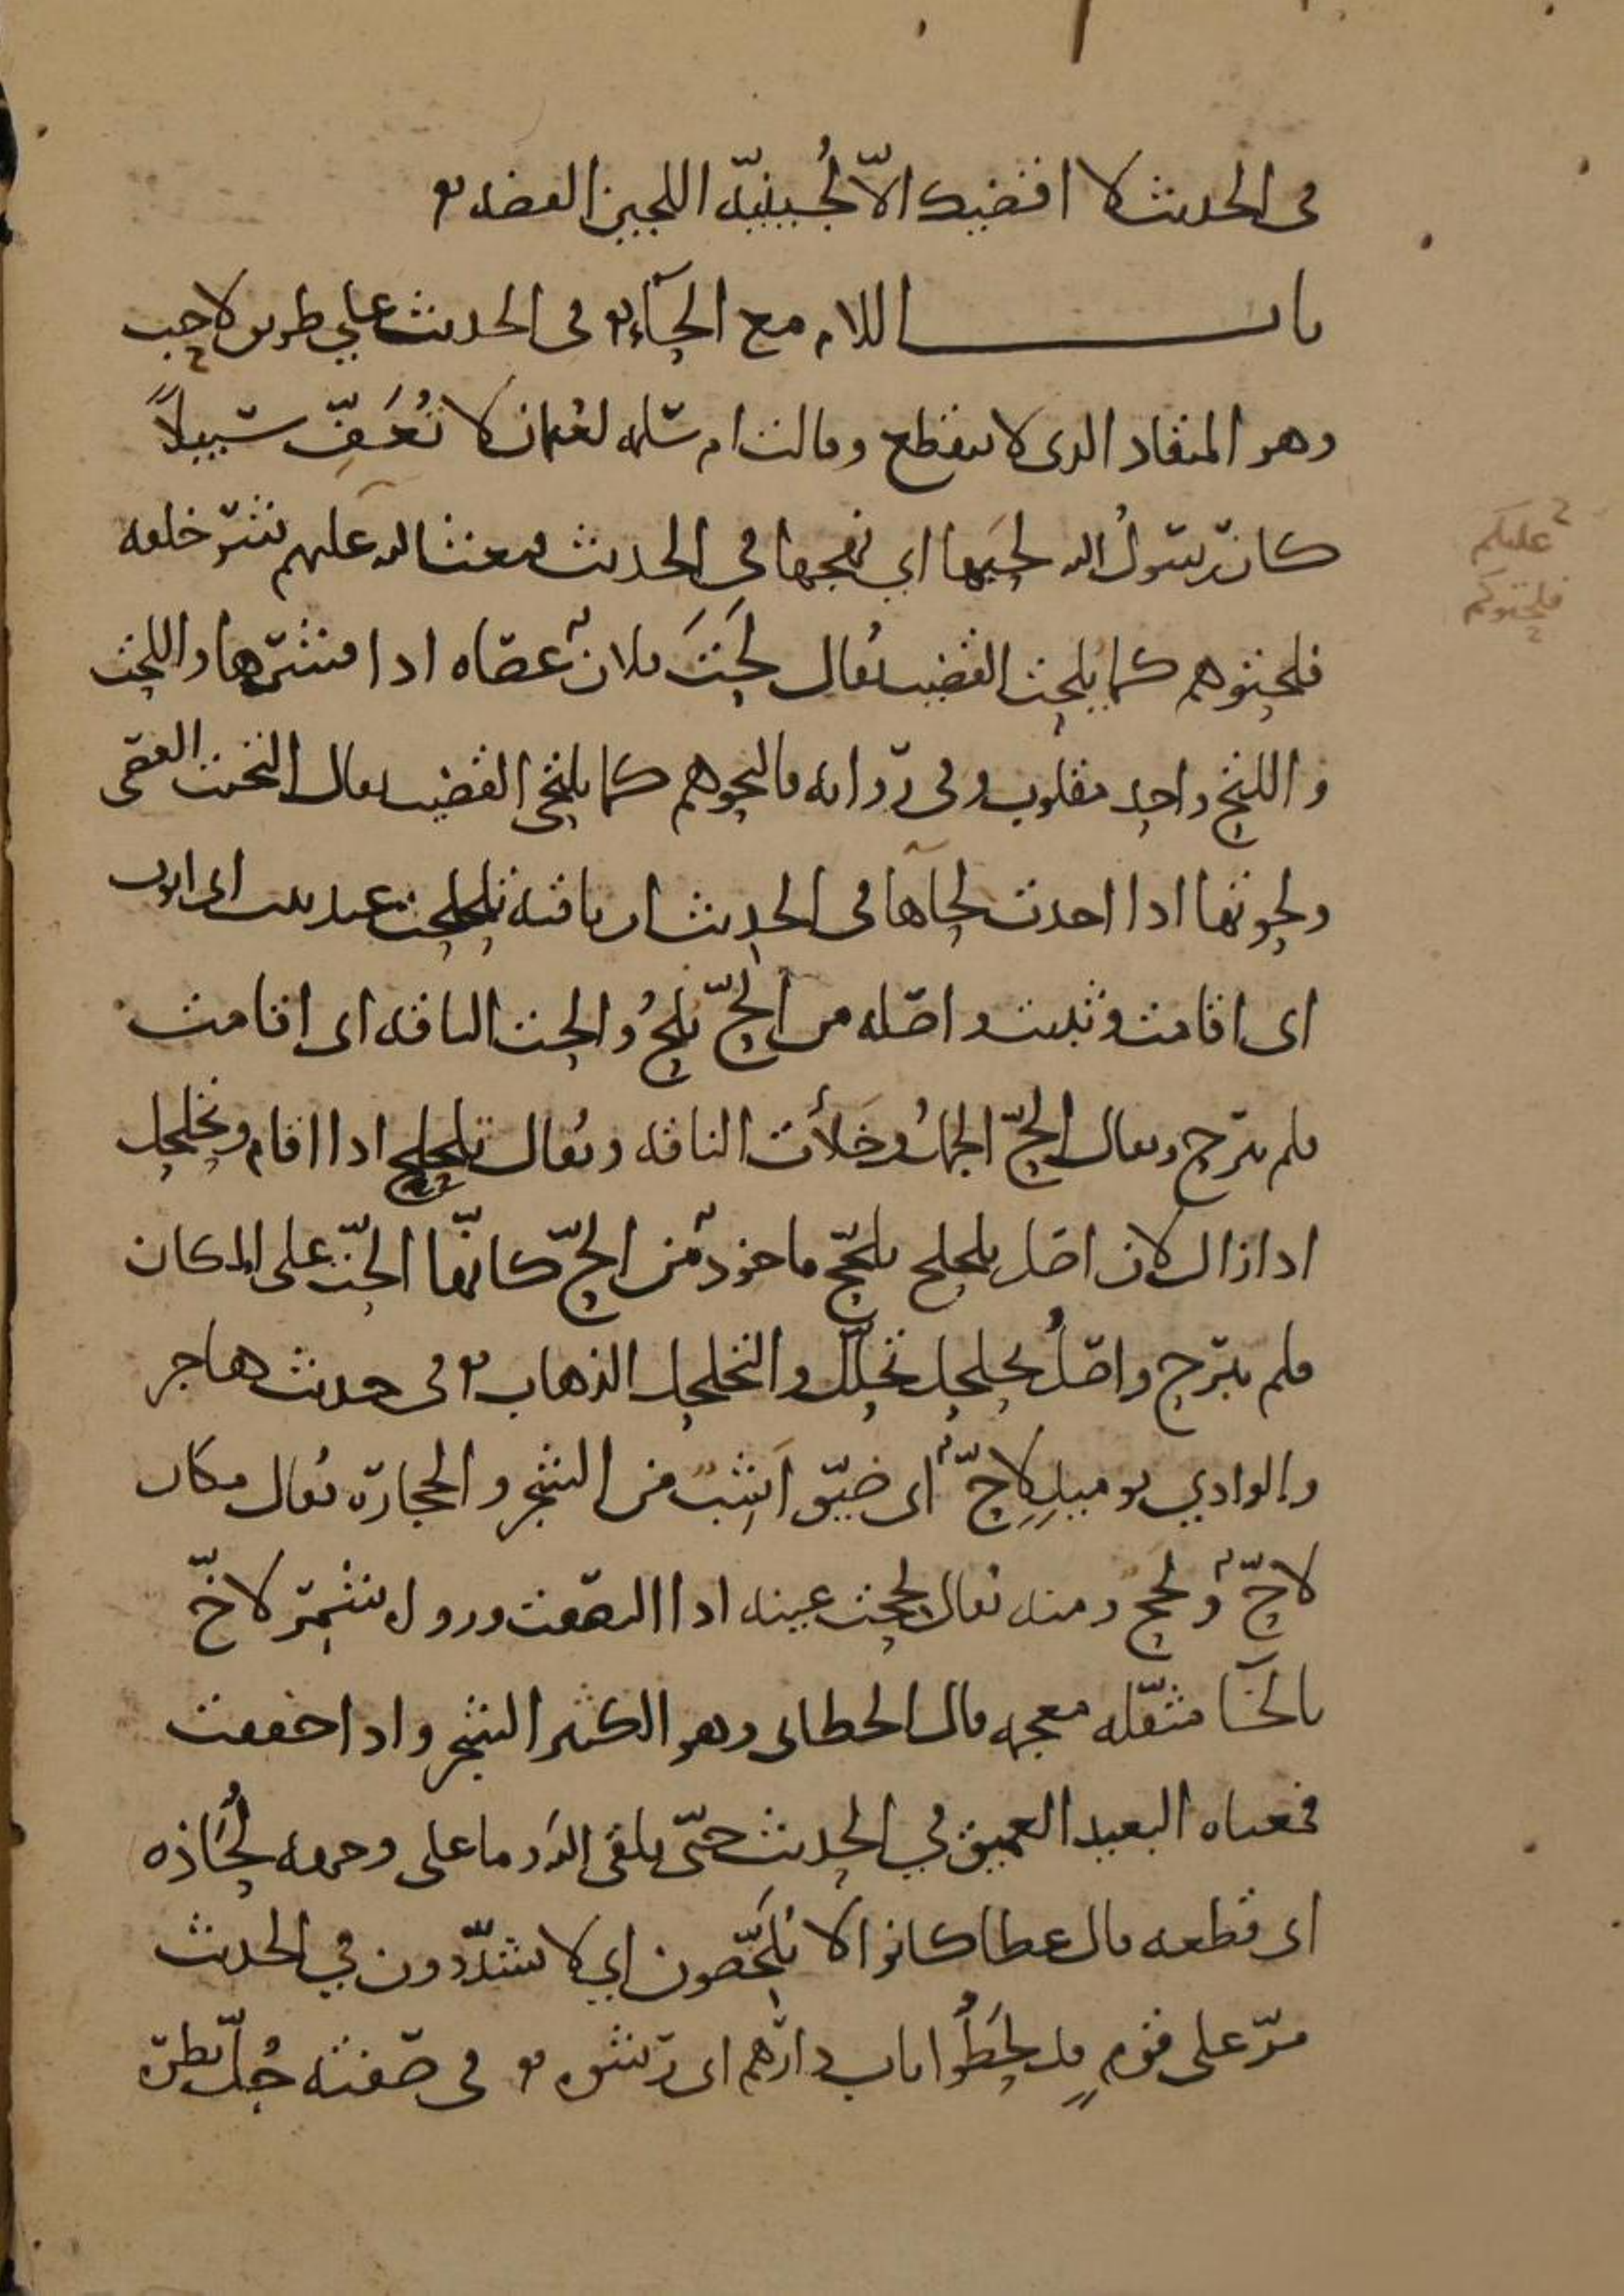 في الحديث لا اقضيك الاّ لُجينيّه اللجين الفضه
باب اللام مع الحآء في الحديث علي طريق لاحب
وهو المنقاد الذي لا ينقطع وقالت ام سلمه لعثمان لا تُعَفِّ سبيلاً
كان رسولُ الله لحَبها اي نهجها في الحديث بعث الله عليهم شر خلقه
فلحتوهم كما يُلحت القضيب يُقال لَحَتَ فلانٌ عصاه اذا قشرها واللحت
واللتح واحد مقلوب وفي روايه فالتحوهم كما يلتحى القضيب يقال التحيت العصى
ولحوتها اذا اخذت لحآها في الحديث ان ناقته تلحلحت عند بيت ابي ايوب
اي اقامت وثبتت واصله من الحّ يُلحُ والحت الناقه اي اقامت
فلم تبرح ويقال الحّ الجملُ وخَلأَت الناقه ويُقال تلحلح اذا اقام وتحلحل
اذا زال لان اصل تلحلح تلحّح ماخوذٌ من الحّ كانّها الحّت على المكان
فلم تبرح واصلُ تحلحل تحلّل والتحلحل الذهاب في حديث هاجر
والوادي يوميذٍ لاحٌّ اي ضيّق اَشِبٌ من الشجر والحجارة يُقال مكان
لاحٌّ ولحح ومنه يُقال لححت عينه اذا التصقت وروى شمّر لاخّ
بالخآ مثقّله معجمه قال الخطابي وهو الكثير الشجر واذا خففت
فمعناه البعيد العميق في الحديث حتّى يلقى الله وما على وجهه لُحَاذه
اي قطعه قال عطا كانوا لا يُلَحّصون اي لا يشدّدون في الحديث
مرّ على قومٍ قد لحَطُوا باب دارهم اي رشوه في صفته جُلّ نظره
عليكم
فلحتوكم